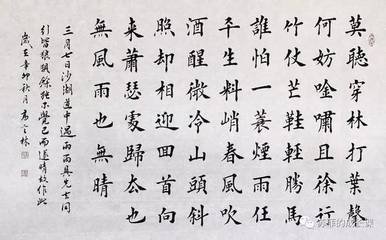 莫聽穿林打葉聲
何妨吟嘯且徐行
竹杖芒鞋輕勝馬
誰怕一蓑煙雨任
平生料峭春風吹
酒醒微冷山頭斜
照卻相迎回首向
來蕭瑟處歸去也
無風雨也無晴
三月七日沙湖道中遇雨雨具先去同
行皆狼狽餘獨不覺已而遂晴故作此
歲在辛卯秋月林